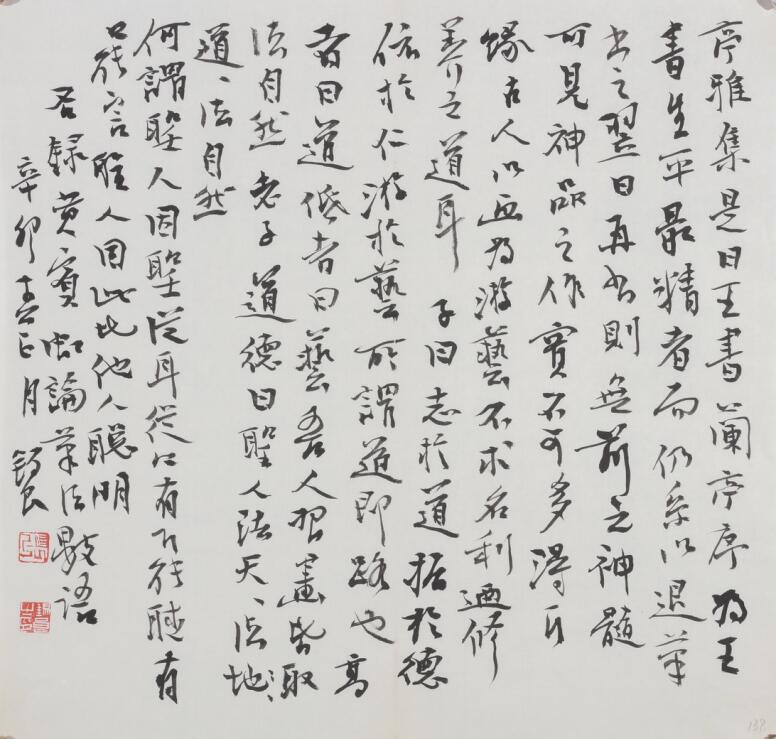 亭雅集是日王書蘭亭序為王
書生平最精者而仍系以退筆
书之翌日再书則無前之神髓
可見神品之作實不可多得耳
緣古人以画為游藝不求名利迺修
養之道耳 子曰志於道据於德
依於仁游於藝所謂道即路也高
者曰道低者曰藝吾人習畫皆取
法自然老子道德曰聖人法天、法地、
道、法自然
何謂聖人因聖從耳從口有耳能聽有
口能言聖人因此比他人聰明
右録黄賓虹論筆法數語
辛卯春正月
138